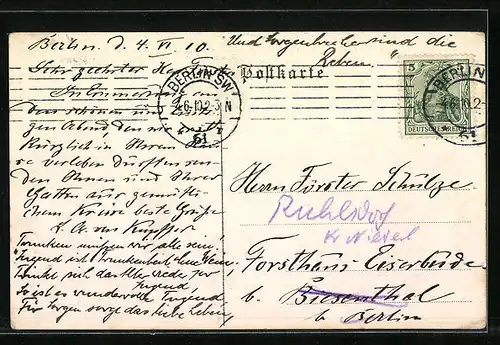 Berlin d. 4. VI. 10.
Und Sorgenbrecher sind die
Reben."
Postkarte
BERLIN SW
4.6.10.2-3N
61
5
DEUTSCHES REICH
BERLIN
4.6.10.2-
61
Sehr geehrter Herr
In Erinnerung an
den schönen
zen Abend, den wir
kürzlich in Ihrem
se verleben durften sen-
den Ihnen und Ihrer
Gattin aus gemüth-
chem Kreise beste Grüße
Trunken müssen wir alle sein,
Jugend ist Trunkenheit ohne Wein,
Trinkt sich das Alter wieder zur
Jugend,
So ist es wundervolle Tugend,
Für Sorgen sorgt das liebe Leben,
Herrn Förster Schulze.
Ruhlsdorf
Kr. Nieder
Forsthaus Eiserbude
b. Biesenthal
b. Berlin